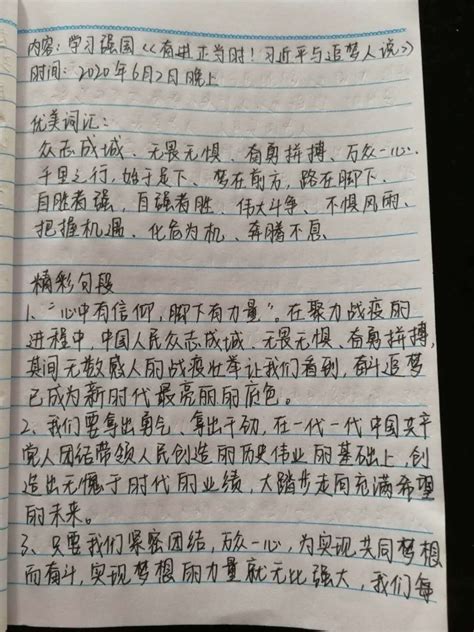 内容：学习强国《奋进正当时！习近平与追梦人说》
时间：2020年6月2日晚上
优美词汇：
众志成城、无畏无惧、奋勇拼搏、万众一心、
千里之行，始于足下、梦在前方，路在脚下、
自胜者强，自强者胜、伟大斗争、不惧风雨、
把握机遇、化危为机、奔腾不息、
精彩句段
1、“心中有信仰，脚下有力量”。在聚力战疫的
进程中，中国人民众志成城、无畏无惧、奋勇拼搏，
其间无数感人的战疫壮举让我们看到，奋斗追梦
已成为新时代最亮丽的底色。
2、我们要拿出勇气、拿出干劲，在一代一代中国共产
党人团结带领人民创造的历史伟业的基础上，创
造出无愧于时代的业绩，大踏步走向充满希望
的未来。
3、只要我们紧密团结，万众一心，为实现共同梦想
而奋斗，实现梦想的力量就无比强大，我们每